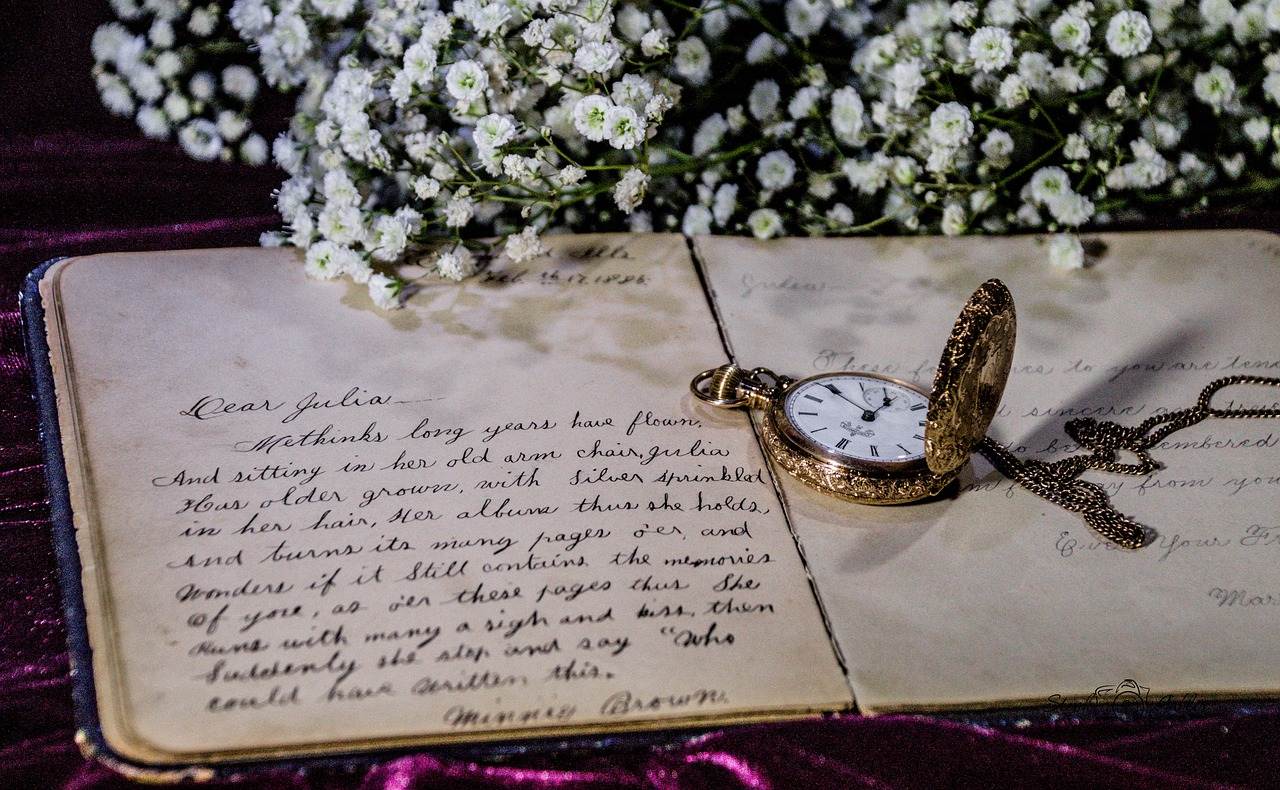 Feb. 17. 1886.
Dear Julia
Methinks long years have flown,
And sitting in her old arm chair, Julia
Has older grown, with Silver sprinkled
in her hair, Her album thus she holds,
And turns its many pages o'er, and
Wonders if it Still contains the memories
Of yore, as o'er these pages thus She
Runs with many a sigh and kiss, then
Suddenly she stop and say "Who
could have written this.
Minnie Brown.
Julia
These few to you are
sincere
to be
from you
Ever Your